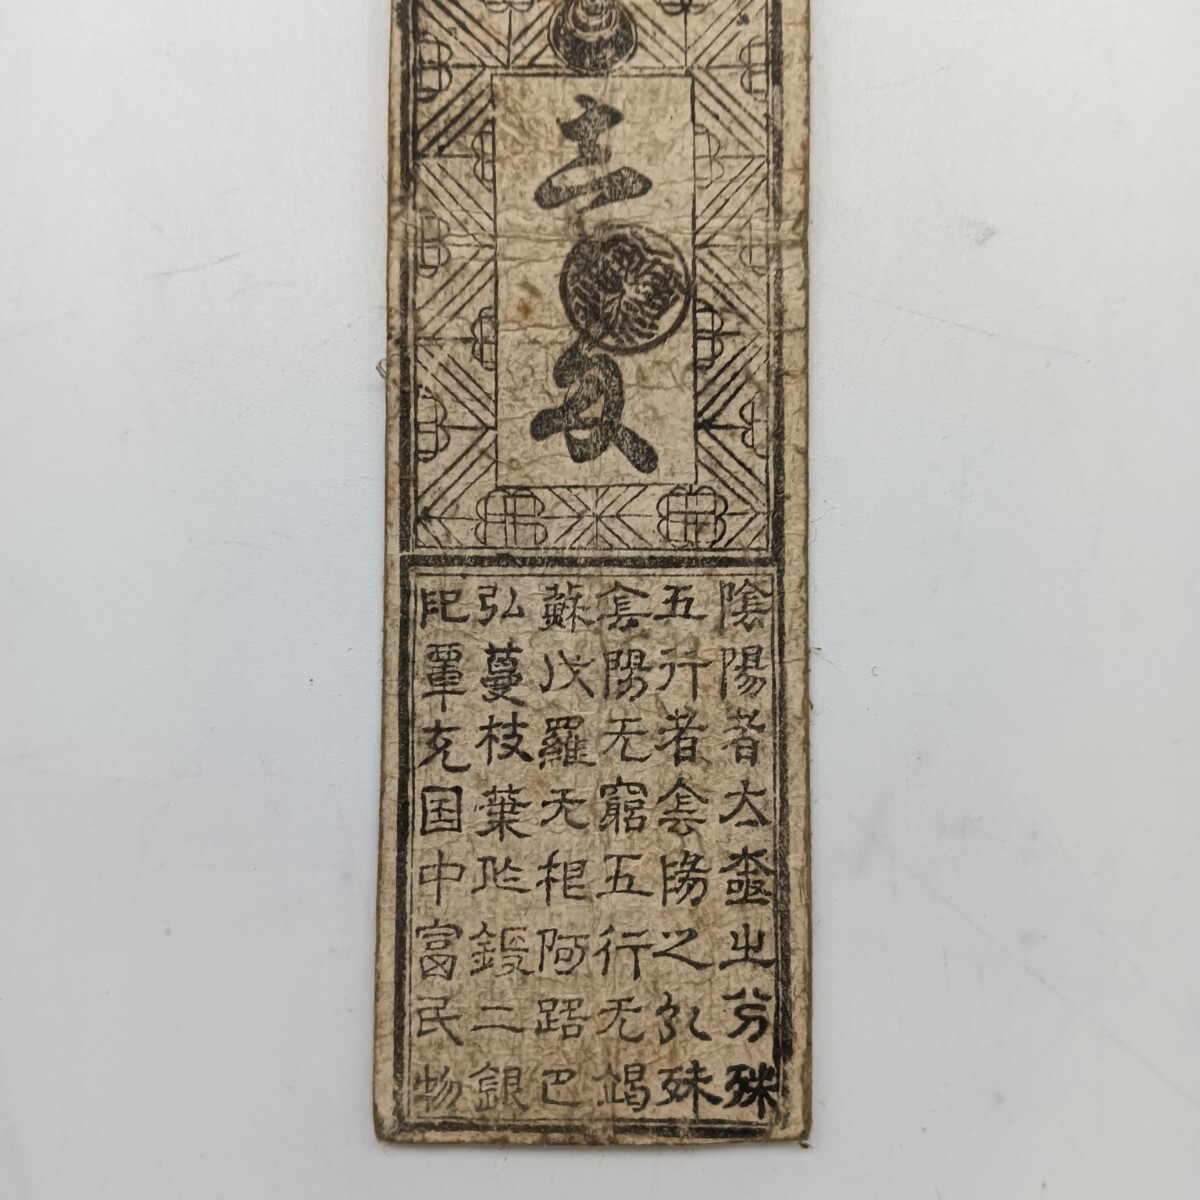 壱
匁
陰陽者太極之分殊
五行者侌陽之孔殊
侌陽无窮五行无竭
蘇伐羅无根阿路巴
弘蔓枝葉作鍛二銀
印覃充国中富民物